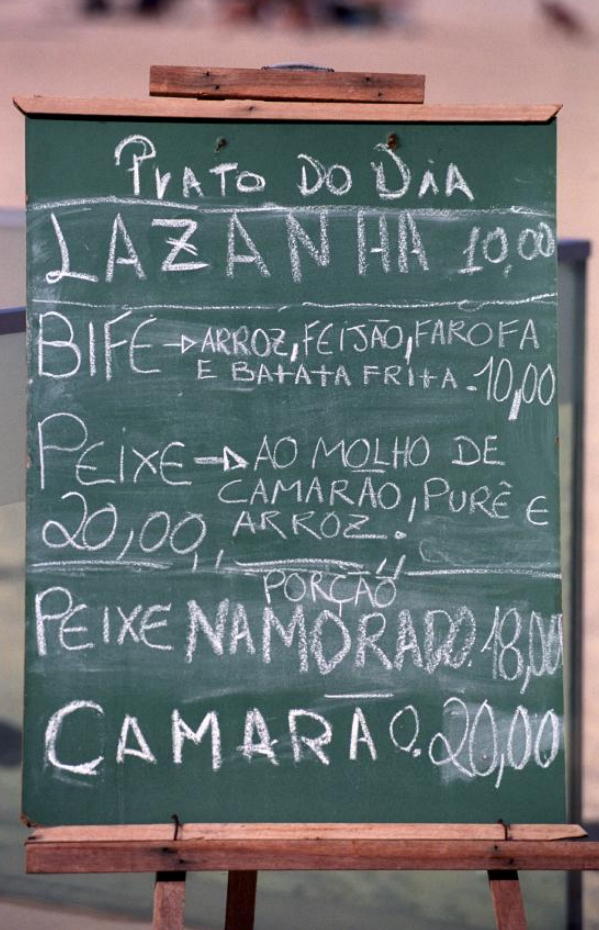 PRATO DO DIA
LAZANHA 10,00
BIFE → ARROZ, FEIJÃO, FAROFA
E BATATA FRITA. 10,00
PEIXE → AO MOLHO DE
CAMARÃO, PURÊ E
20,00 ARROZ.
PORÇÃO
PEIXE NAMORADO. 18,00
CAMARÃO. 20,00